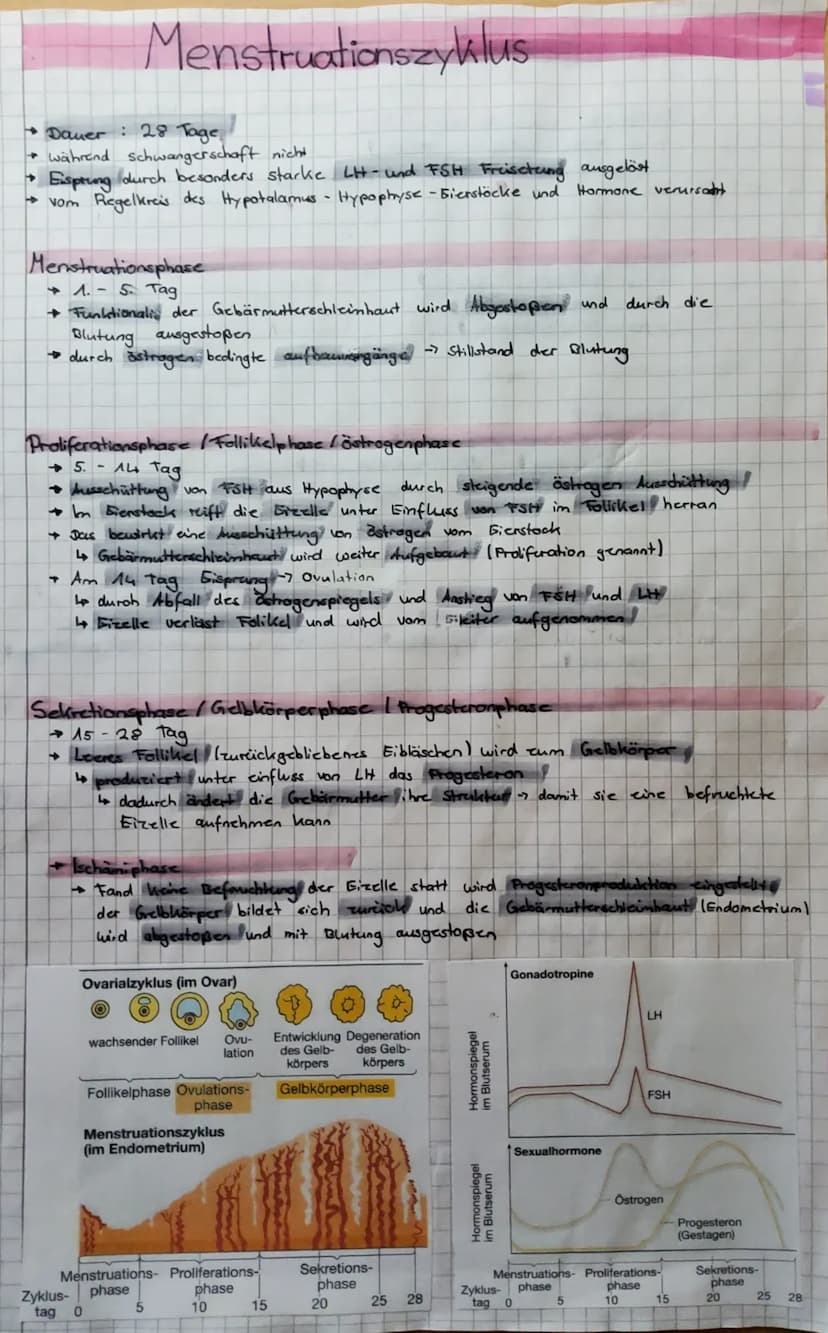 Menstruationszyklus
→ Dauer : 28 Tage
→ während schwangerschaft nicht
→ Eisprung durch besonders starke LH- und FSH Freisetung ausgelöst
→ vom Regelkreis des Hypotalamus - Hypophyse - Eierstöcke und Hormone verursacht
Menstruationsphase
→ 1. - 5. Tag
→ Funktionalis der Gebärmutterschleinhaut wird Abgestoßen und durch die
Blutung ausgestoßen
→ durch östrogen bedingte aufbauvorgänge → Stillstand der Blutung
Proliferationsphase / Follikelphase / östrogenphase
→ 5. - 14 Tag
→ Ausschüttung von FSH aus Hypophyse durch steigende östrogen Ausschüttung
→ Im Eierstock reift die Eizelle unter Einfluss von FSH im Follikel herran
→ Das bewirkt eine Ausschüttung von östrogen vom Eierstock
↳ Gebärmutterschleimhaut wird weiter Aufgebaut (Proliferation genannt)
→ Am 14 Tag Eisprung → Ovulation
↳ durch Abfall des östrogenspiegels und Anstieg von FSH und LH
↳ Eizelle verläst Folikel und wird vom Eileiter aufgenommen
Sekretionsphase / Gelbkörperphase / Progesteronphase
→ 15 - 28 Tag
→ Leeres Follikel (zurückgebliebenes Eibläschen) wird zum Gelbkörper
↳ produziert unter einfluss von LH das Progesteron
↳ dadurch ändert die Gebärmutter ihre Struktur → damit sie eine befruchtete
Eizelle aufnehmen kann
→ Ischämiphase
→ Fand keine Befruchtung der Eizelle statt wird Progesteronproduktion eingestellt,
der Gelbkörper bildet sich zurück und die Gebärmutterschleimhaut (Endometrium)
wird abgestoßen und mit Blutung ausgestoßen
Ovarialzyklus (im Ovar)
wachsender Follikel
Ovu-
lation
Entwicklung
des Gelb-
körpers
Degeneration
des Gelb-
körpers
Follikelphase
Ovulations-
phase
Gelbkörperphase
Menstruationszyklus
(im Endometrium)
Menstruations-
phase
Proliferations-
phase
Sekretions-
phase
Zyklus-
tag 0 5 10 15 20 25 28
Gonadotropine
Hormonspiegel
im Blutserum
LH
FSH
Sexualhormone
Hormonspiegel
im Blutserum
Östrogen
Progesteron
(Gestagen)
Menstruations-
phase
Proliferations-
phase
Sekretions-
phase
Zyklus-
tag 0 5 10 15 20 25 28